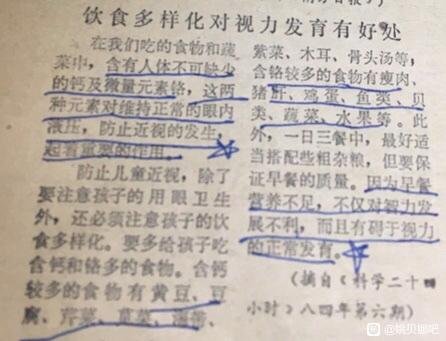 饮食多样化对视力发育有好处
在我们吃的食物和蔬
菜中，含有人体不可缺少
的钙及微量元素铬，这两
种元素对维持正常的眼内
液压，防止近视的发生，
起着重要的作用。
防止儿童近视，除了
要注意孩子的用眼卫生
外，还必须注意孩子的饮
食多样化。要多给孩子吃
含钙和铬多的食物。含钙
较多的食物有黄豆、豆
腐、芹菜、
紫菜、木耳、骨头汤等，
含铬较多的食物有瘦肉、
猪肝、鸡蛋、鱼类、贝
类、蔬菜、水果等。此
外，一日三餐中，最好适
当搭配些粗杂粮，但要保
证早餐的质量。因为早餐
营养不足，不仅对智力发
展不利，而且有碍于视力
的正常发育。
（摘自《科学二十四
小时》八四年第六期）
@姚贝娜吧